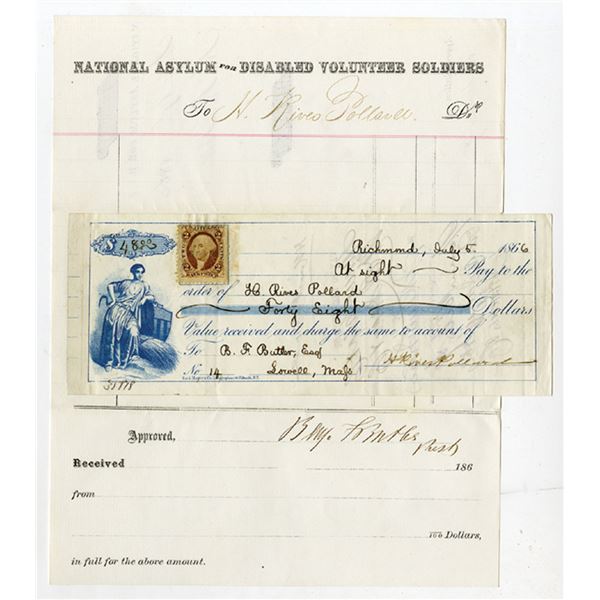 NATIONAL ASYLUM FOR DISABLED VOLUNTEER SOLDIERS
To H. Rives Pollard Dr.
$ 48
Richmond, July 5 1866
At sight Pay to the
order of H. Rives Pollard
Forty Eight Dollars
Value received and charge the same to account of
To B. F. Butler, Esq H Rives Pollard
No 14 Lowell, Mass
Approved, Benj F Butler
Prest
Received 186
from
100 Dollars,
in full for the above amount.